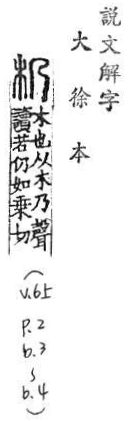 說文解字
大徐本
朹木也从木乃聲
讀若仍如乘切
(v.6上
p.2
b.3
~
b.4)